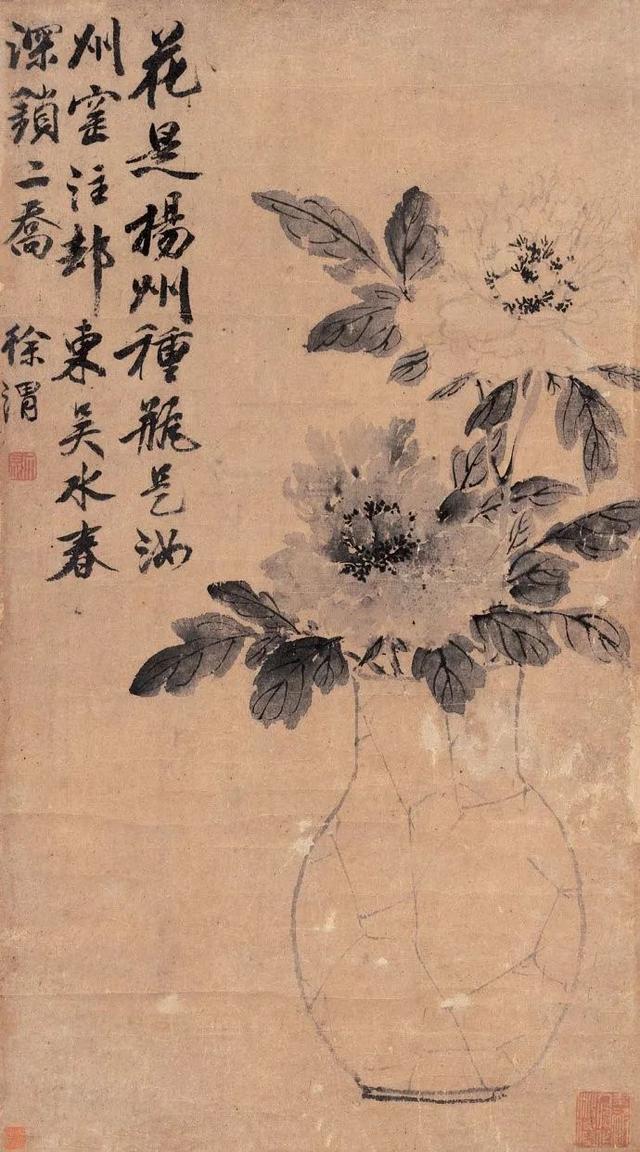 花是揚州種瓶是汝
州窰注却東吳水春
深鎖二喬
徐渭